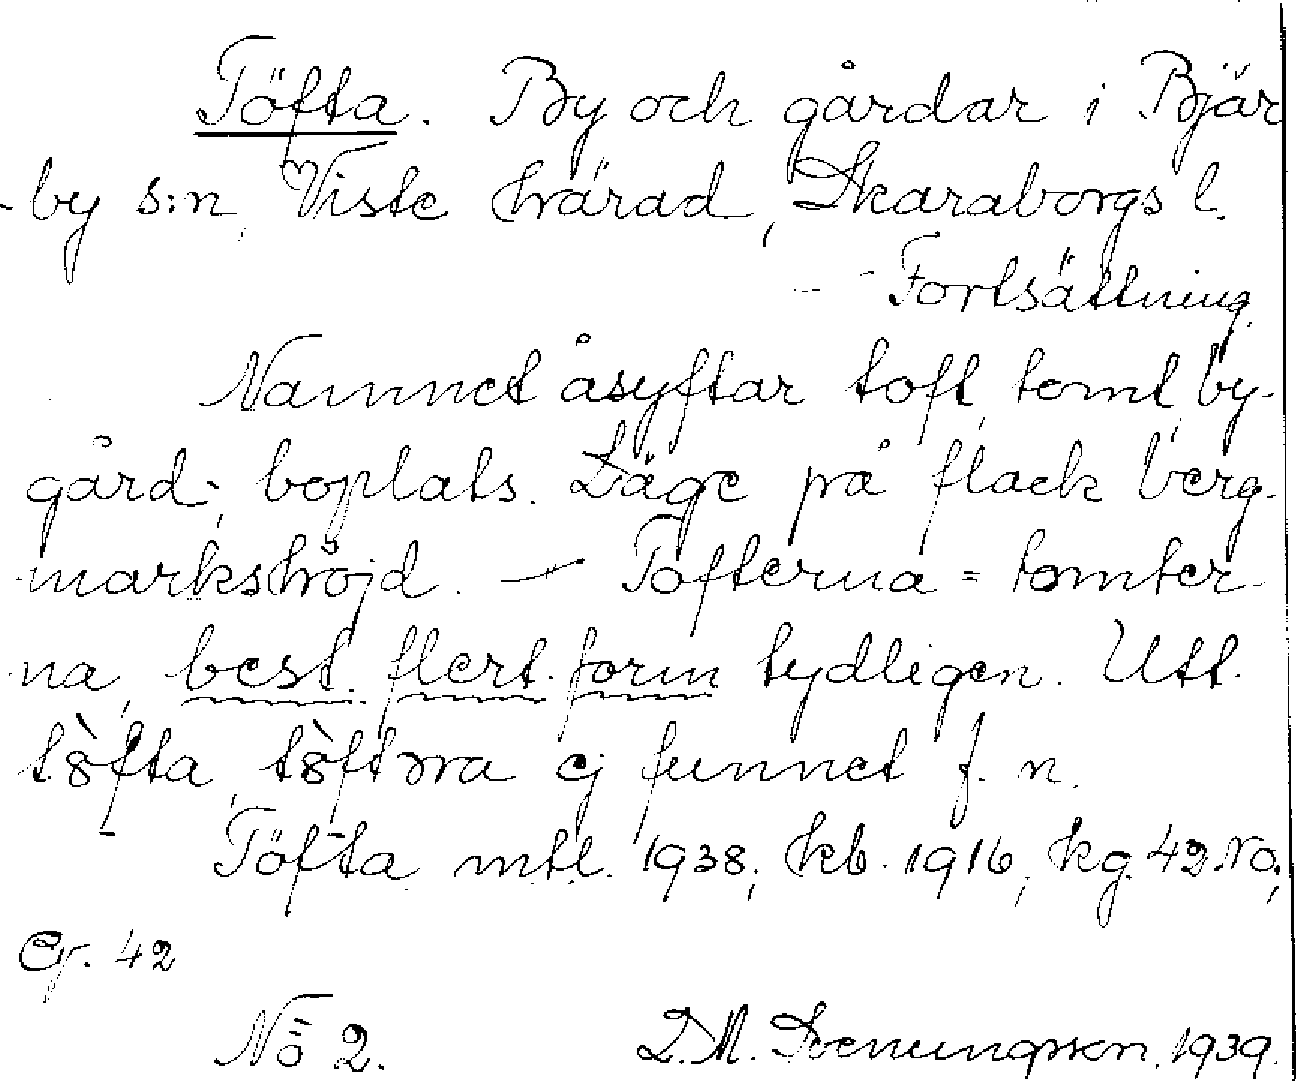 Töfta. By och gårdar i Bjär
-by s:n, Viste härad, Skaraborgs l.
- Fortsättning.
Namnet åsyftar toft, tomt, by-
gård, boplats. Läge på flack berg-
markshöjd. — Tofterna = tomter-
na, best. flert. form tydligen. Utt.
ej funnet f. n.
Töfta mtl. 1938, kb. 1916, kg. 42 NO,
Ej. 42
No 2. L.M. 1939.